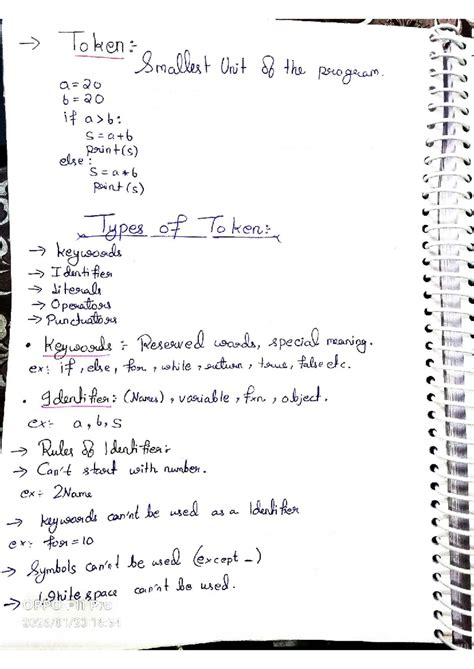 → Token :-
Smallest Unit of the program.
a = 20
b = 20
if a > b :
s = a + b
print (s)
else :
s = a * b
print (s)
Types of Token :-
→ Keywords
→ Identifier
→ Literals
→ Operators
→ Punctuators
• Keywords :- Reserved words, special meaning.
ex: if, else, for, while, return, true, false etc.
• Identifier : (Names), variable, fxn, object.
ex:- a, b, s
→ Rules of Identifier :-
→ Can't start with number.
ex:- 2Name
→ Keywords can'nt be used as a Identifier
ex: for = 10
→ Symbols can'nt be used (except _)
→ White space can'nt be used.
2026/01/23 16:34